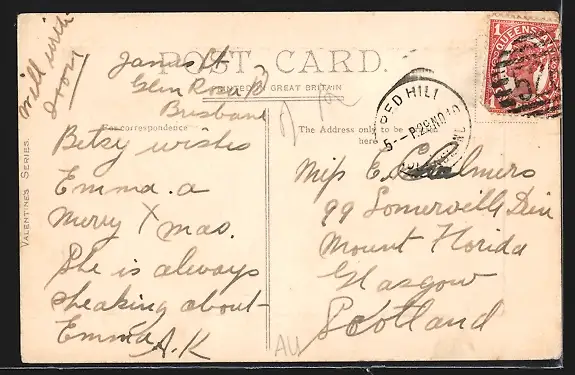 POST CARD.
PRINTED IN GREAT BRITAIN
For correspondence
The Address only to be
here
VALENTINES SERIES.
will write
James St
Glen Rosa Rd
Brisbane
Betsy wishes
Emma . a
Merry Xmas.
She is always
speaking about
Emma A.K
Miss E. Chalmers
99 Somerville Driv
Mount Florida
Glasgow
Scotland
1
QUEENSLAND
RED HILL
5-P 28 NO 10
QUEENSLAND
AU